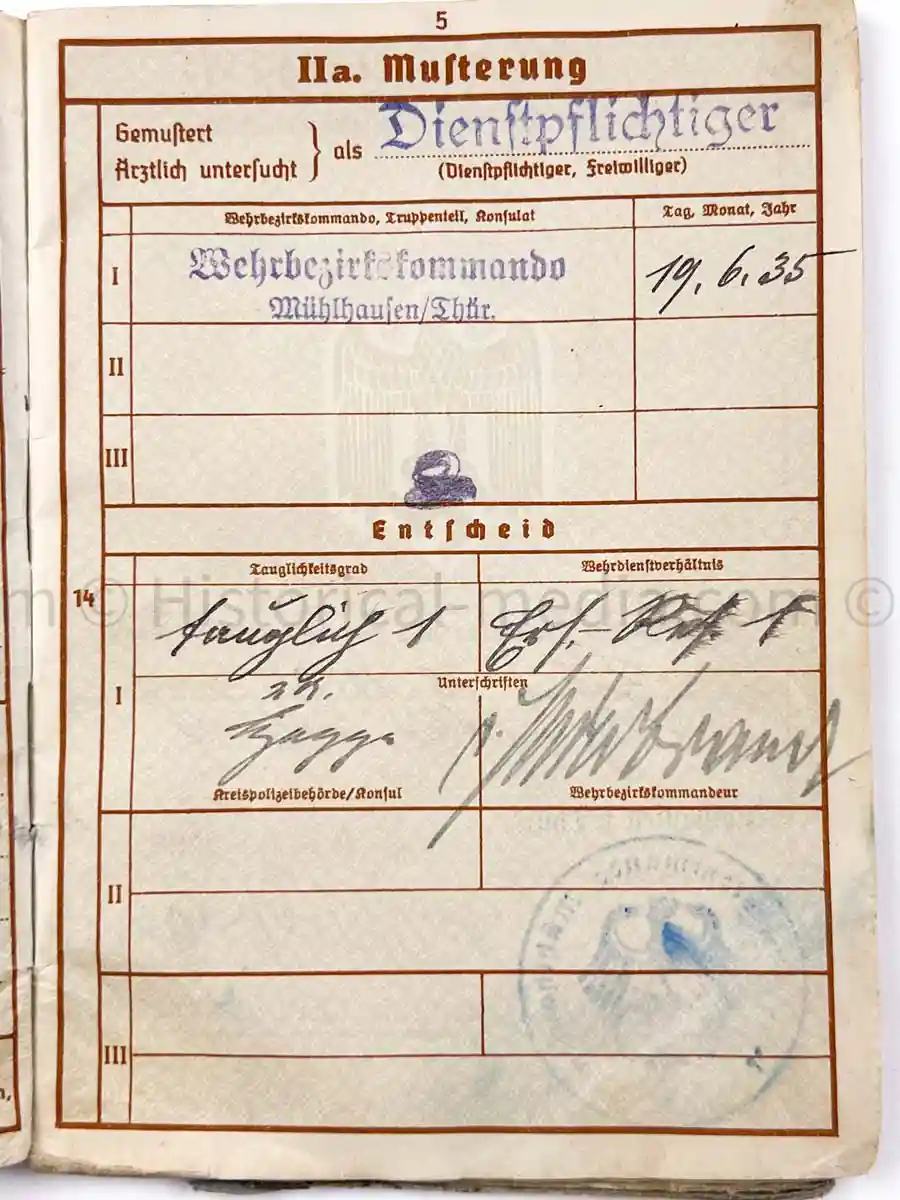 5
IIa. Musterung
Gemustert
Ärztlich untersucht } als Dienstpflichtiger
(Dienstpflichtiger, Freiwilliger)
Wehrbezirkskommando, Truppenteil, Konsulat
Tag, Monat, Jahr
I Wehrbezirkskommando
Mühlhausen/Thür.
19. 6. 35
II
III
Entscheid
Tauglichkeitsgrad
Wehrdienstverhältnis
14
© Historical-media.com ©
tauglich 1
Ers.-Res. 1
I
Unterschriften
Kreispolizeibehörde/Konsul
Wehrbezirkskommandeur
II
III